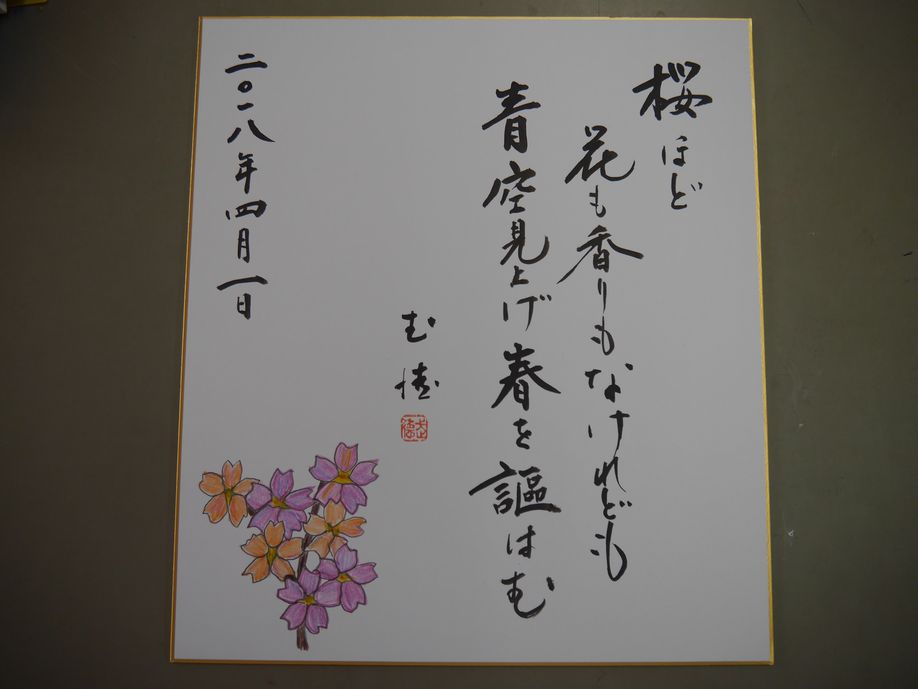 桜ほど
花も香りもなけれども
青空見上げ春を謳はむ
二〇一八年四月一日